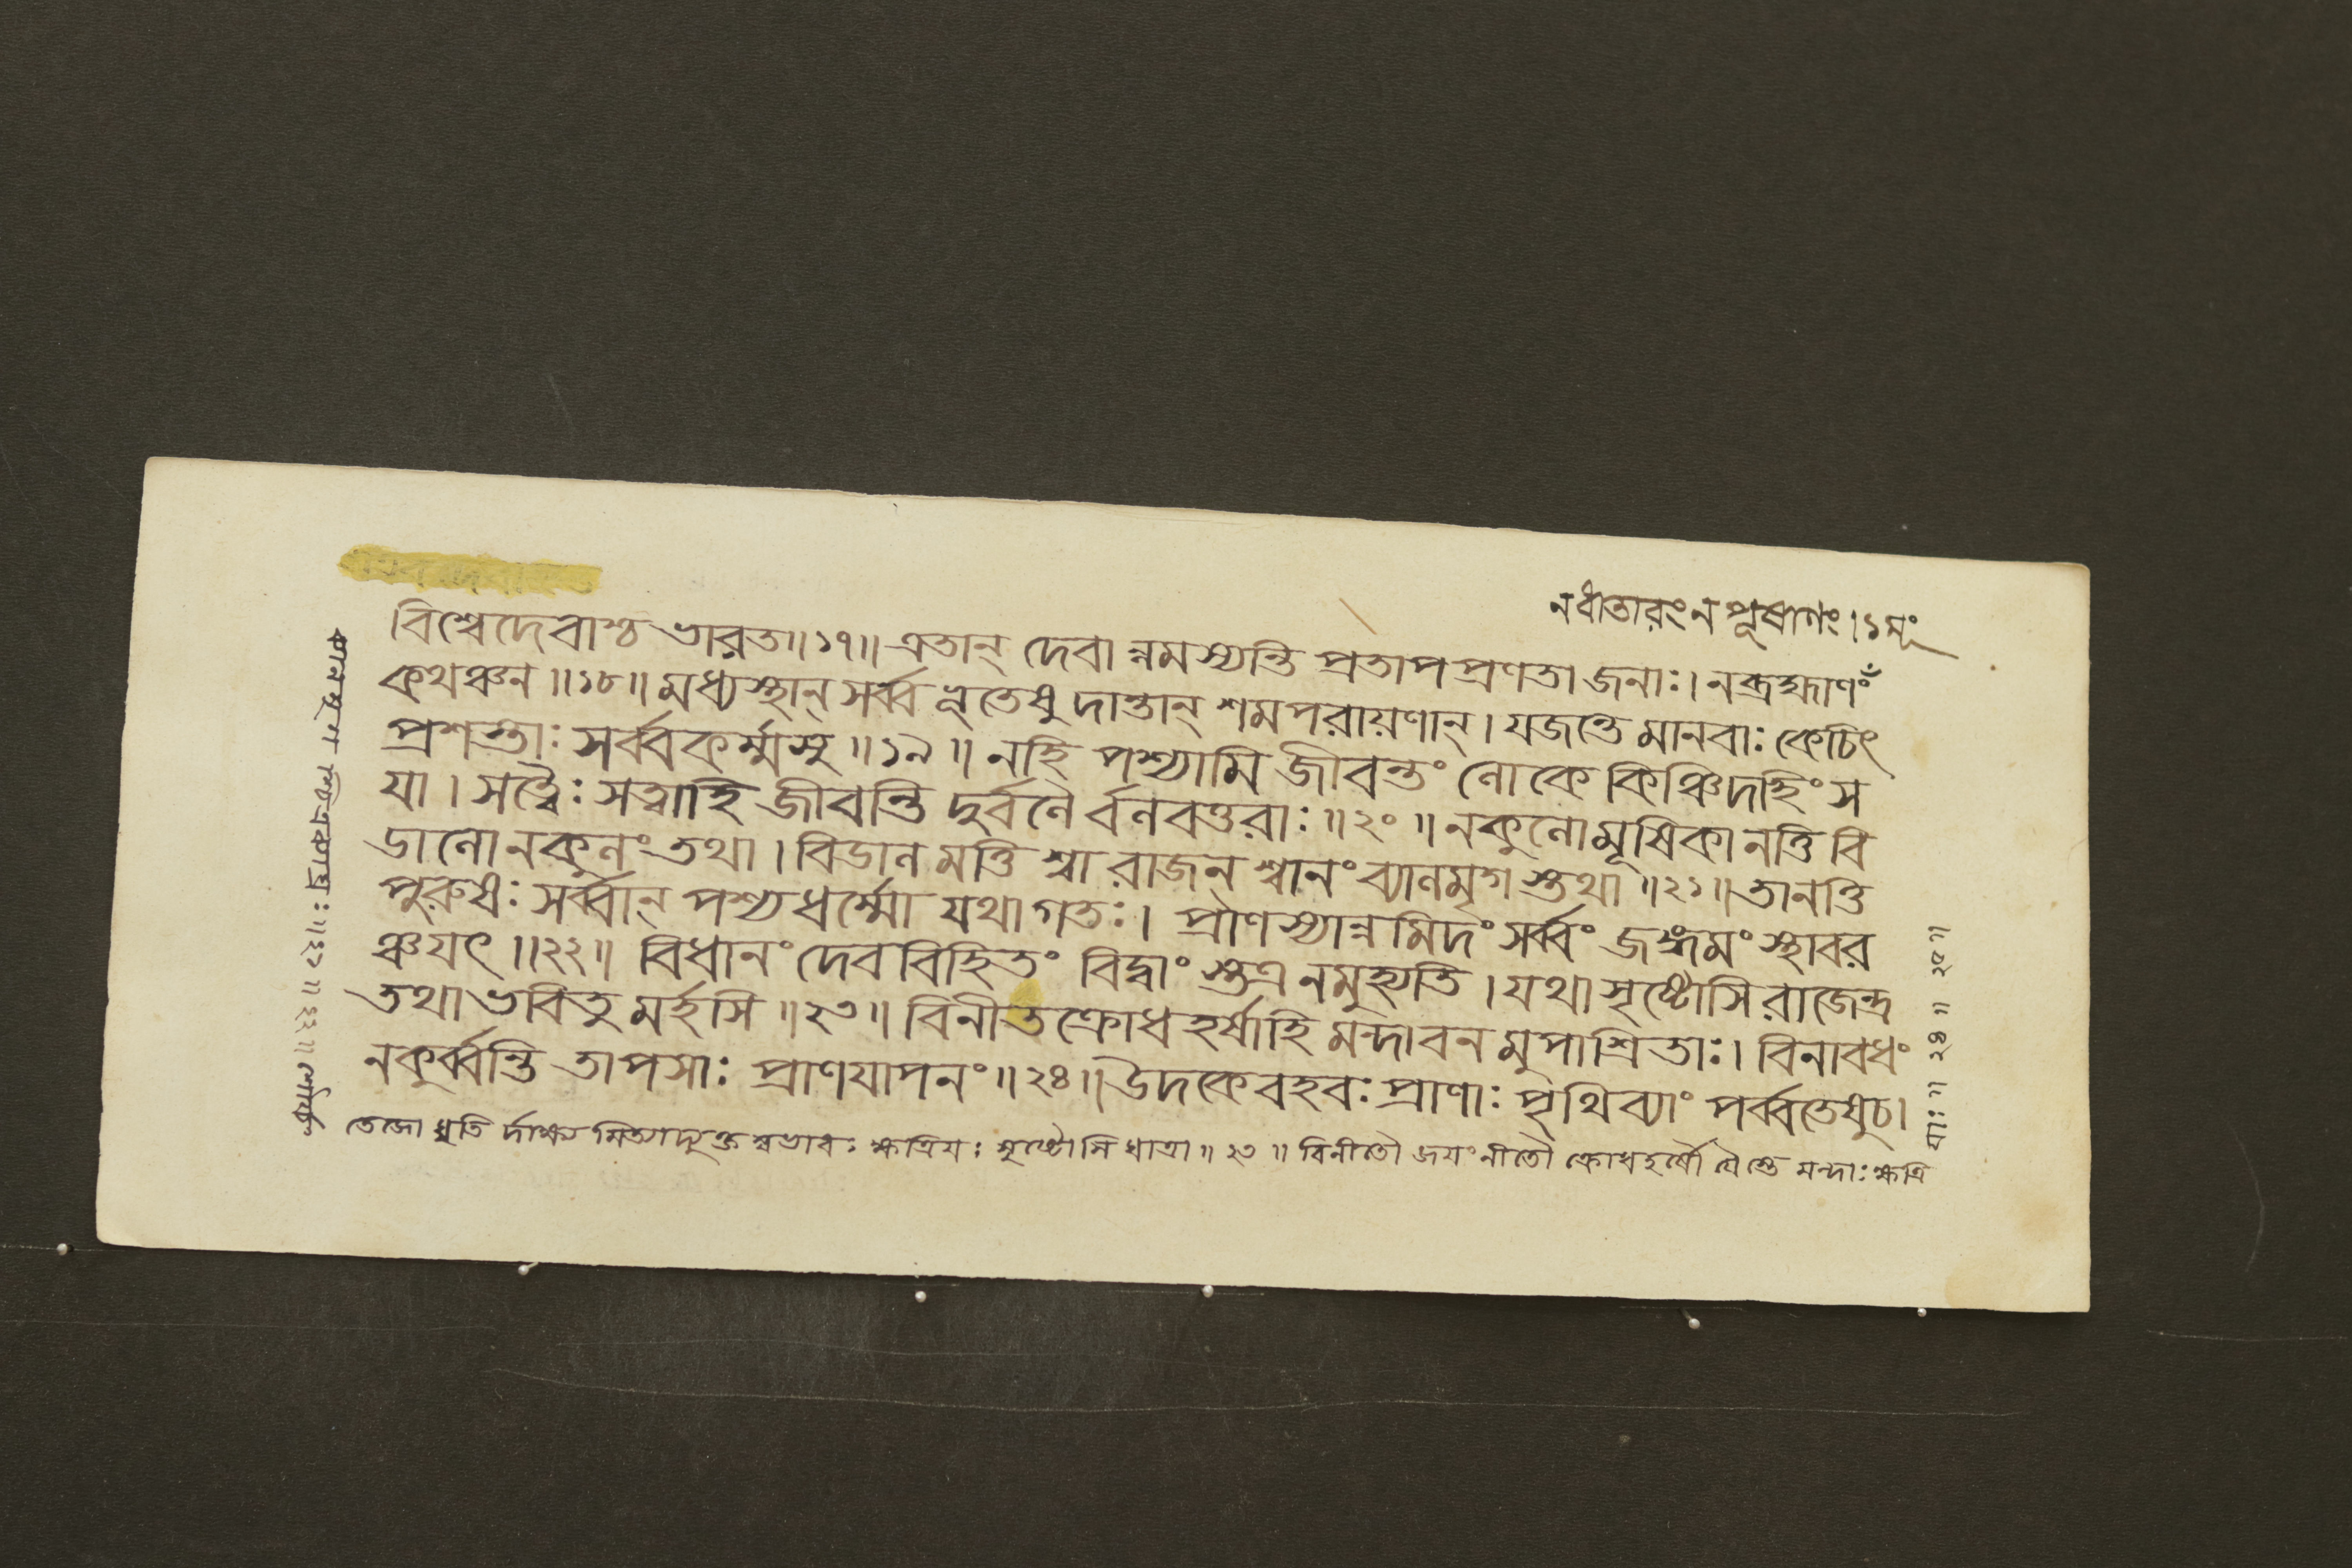 নধাতারং ন পূষাণং । ১মূং
বিশ্বেদেবাশ্চ ভারত ॥ ১৭ ॥ এতান্ দেবা ন্নমস্যন্তি প্রতাপপ্রণতা জনাঃ । নব্রহ্মাণং
কথঞ্চন ॥ ১৮ ॥ মধ্যস্থান্ সর্ব্ব ভূতেষু দান্তান্ শমপরায়ণান্ । যজন্তে মানবাঃ কেচিৎ
প্রশস্তাঃ সর্ব্বকর্ম্মসু ॥ ১৯ ॥ নহি পশ্যামি জীবন্তং লোকে কিঞ্চিদহিংস
যা । সত্ত্বৈঃ সত্বাহি জীবন্তি দুর্বলৈ র্বলবত্তরাঃ ॥ ২০ ॥ নকুলো মূষিকানত্তি বি
ডালো নকুলং তথা । বিডাল মত্তি শ্বা রাজন্ শ্বানং ব্যালমৃগ স্তথা ॥ ২১ ॥ তানত্তি
পুরুষঃ সর্ব্বান্ পশ্য ধর্ম্মো যথা গতঃ । প্রাণস্যান্নমিদং সর্ব্বং জঙ্গমং স্থাবর
ঞ্চ যৎ ॥ ২২ ॥ বিধানং দেববিহিতং বিদ্বাং স্তত্র নমুহ্যতি । যথা সৃষ্টোসি রাজেন্দ্র
তথা ভবিতু মর্হসি ॥ ২৩ ॥ বিনীতক্রোধহর্ষাহি মন্দা বনমুপাশ্রিতাঃ । বিনাবধং
নকুর্ব্বন্তি তাপসাঃ প্রাণযাপনং ॥ ২৪ ॥ উদকে বহবঃ প্রাণাঃ পৃথিব্যাং পর্ব্বতেষুচ ।
তেজো ধৃতি র্দাক্ষ্য মিত্যাদ্যুক্ত স্বভাবঃ ক্ষত্রিয়ঃ সৃষ্টোসি ধাত্রা ॥ ২৩ ॥ বিনীতৌ অয়ংনীতৌ ক্রোধহর্ষৌ যৈস্তে মন্দাঃ ক্ষত্রি
যাঃ ॥ ২৪ ॥ ২৫ ॥
ব্যালমৃগ শ্চিত্রকব্যাঘ্রঃ ॥ ২১ ॥ ২২ ॥